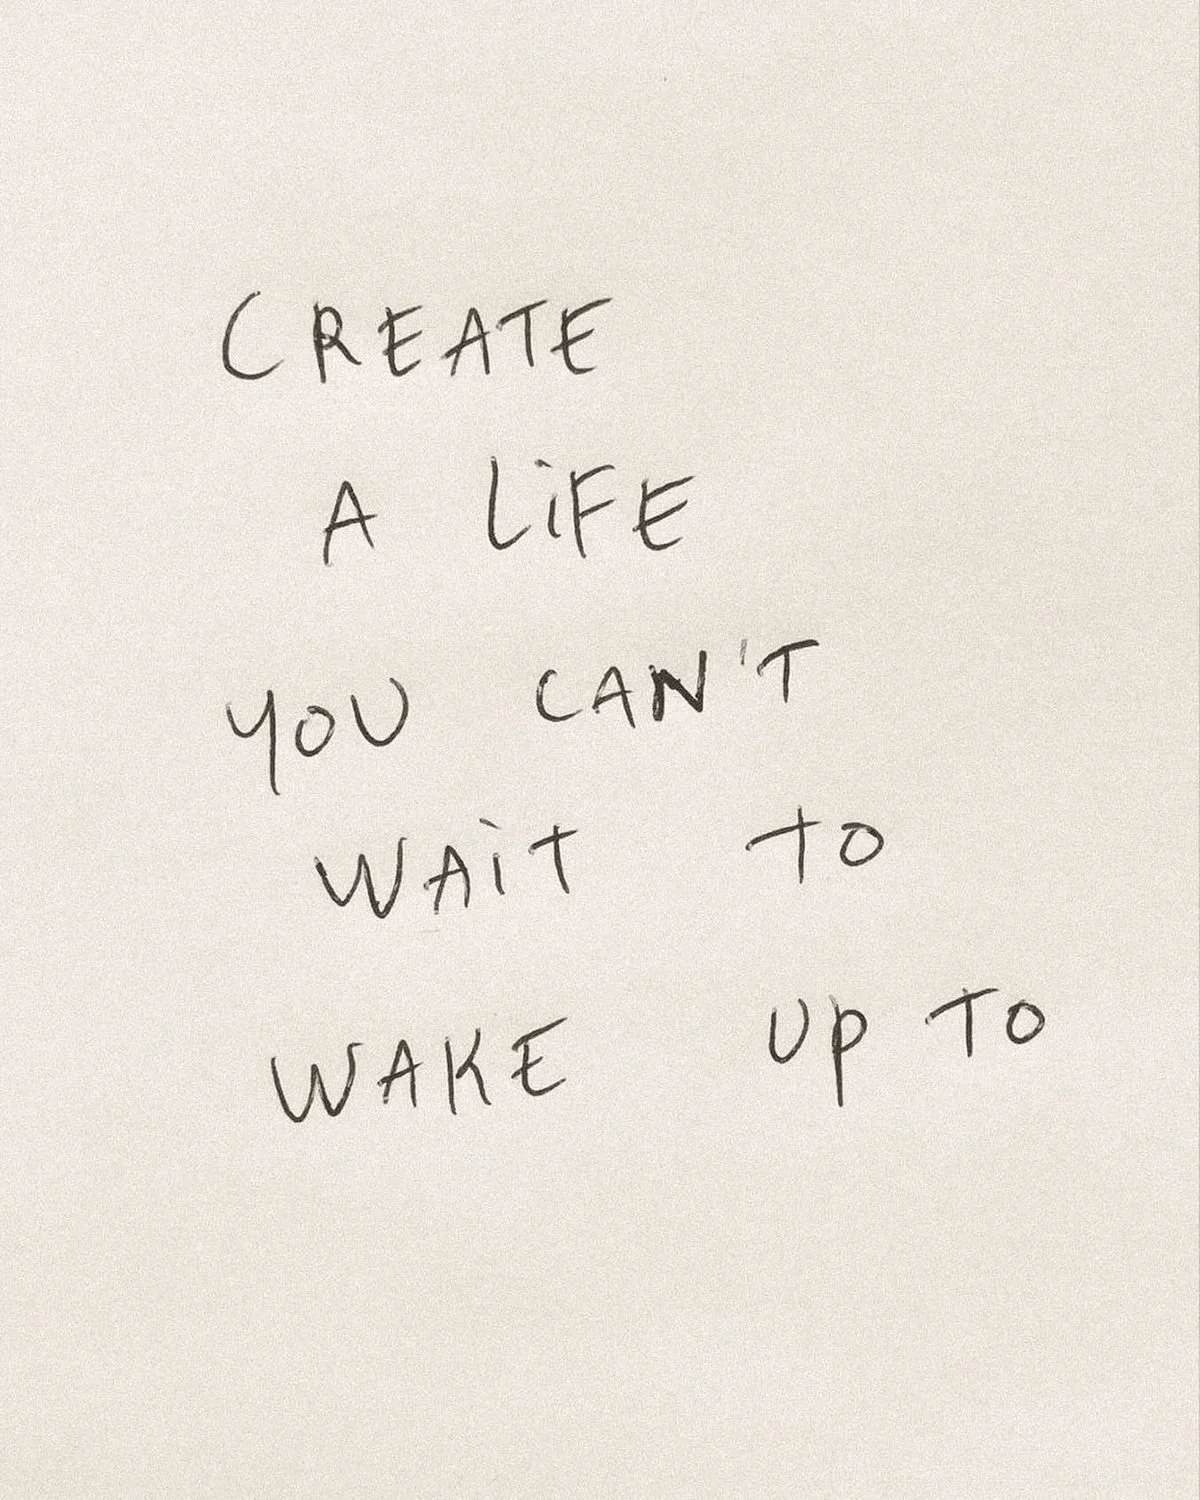 CREATE
A LiFE
YOU CAN'T
WAiT TO
WAKE UP TO